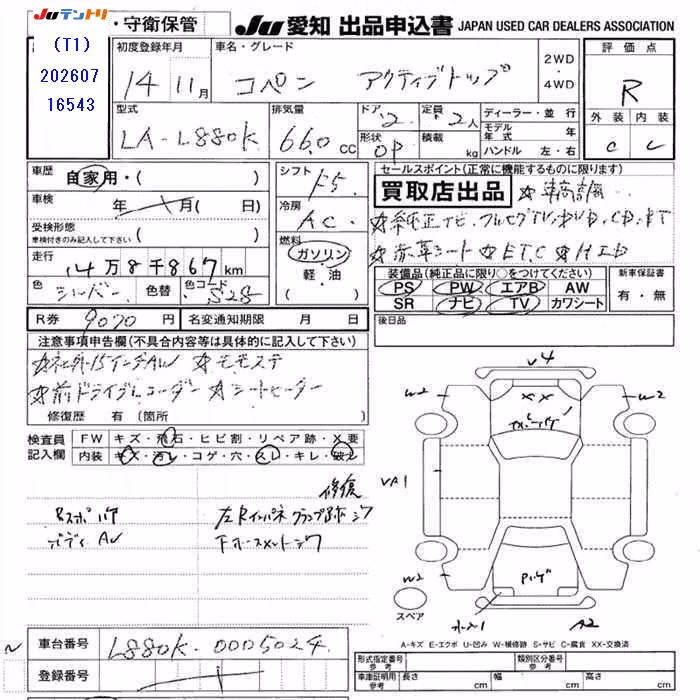 JUテントリ
(T1)
202607
16543
・守衛保管
JU 愛知 出品申込書 JAPAN USED CAR DEALERS ASSOCIATION
初度登録年月 車名・グレード 評価点
14 年 11月 コペン アクティブトップ 2WD・4WD
R
型式 排気量 ドア 定員 ディーラー・並行 外装 内装
LA-L880K 660cc 2 2人 モデル年式 年 C C
形状 OP 積載 kg ハンドル 左・右
車歴 自家用・( )
シフト F5
セールスポイント(正常に機能するものに限ります)
買取店出品
車検 年 月( 日)
冷房 AC
☆純正ナビ、フルセグTV、DVD、CD、BT
受検形態 車検付きのみ記入して下さい ・( )
☆赤革シート ☆ETC ☆HID
走行 14万8千867km
燃料 ガソリン・軽・油
装備品(純正品に限り○をつけてください) 新車保証書
PS PW エアB AW 有・無
SR ナビ TV カワシート
色 シルバー 色替 色コード S28
R券 9070円 名変通知期限 月 日
後日品
注意事項申告欄(不具合内容等は具体的に記入して下さい)
☆社外15インチAW ☆モモステ
☆前ドライブレコーダー ☆シートヒーター
修復歴 有 (箇所 )
検査員記入欄 FW キズ・飛石・ヒビ割・リペア跡・X要
内装 キズ・汚レ・コゲ・穴・スレ・キレ・破レ
修復
左Rインパネ クランプ跡
ボディ AU
V4
W2
W2
XX
UA1
W2
A2
スペア
A-キズ E-エクボ U-凹み W-補修跡 S-サビ C-腐食 XX-交換済
車台番号 L880K-0005024
登録番号
型式指定番号 参考 類別区分番号 参考
車庫証明用 参考 長さ cm 幅 cm 高さ cm